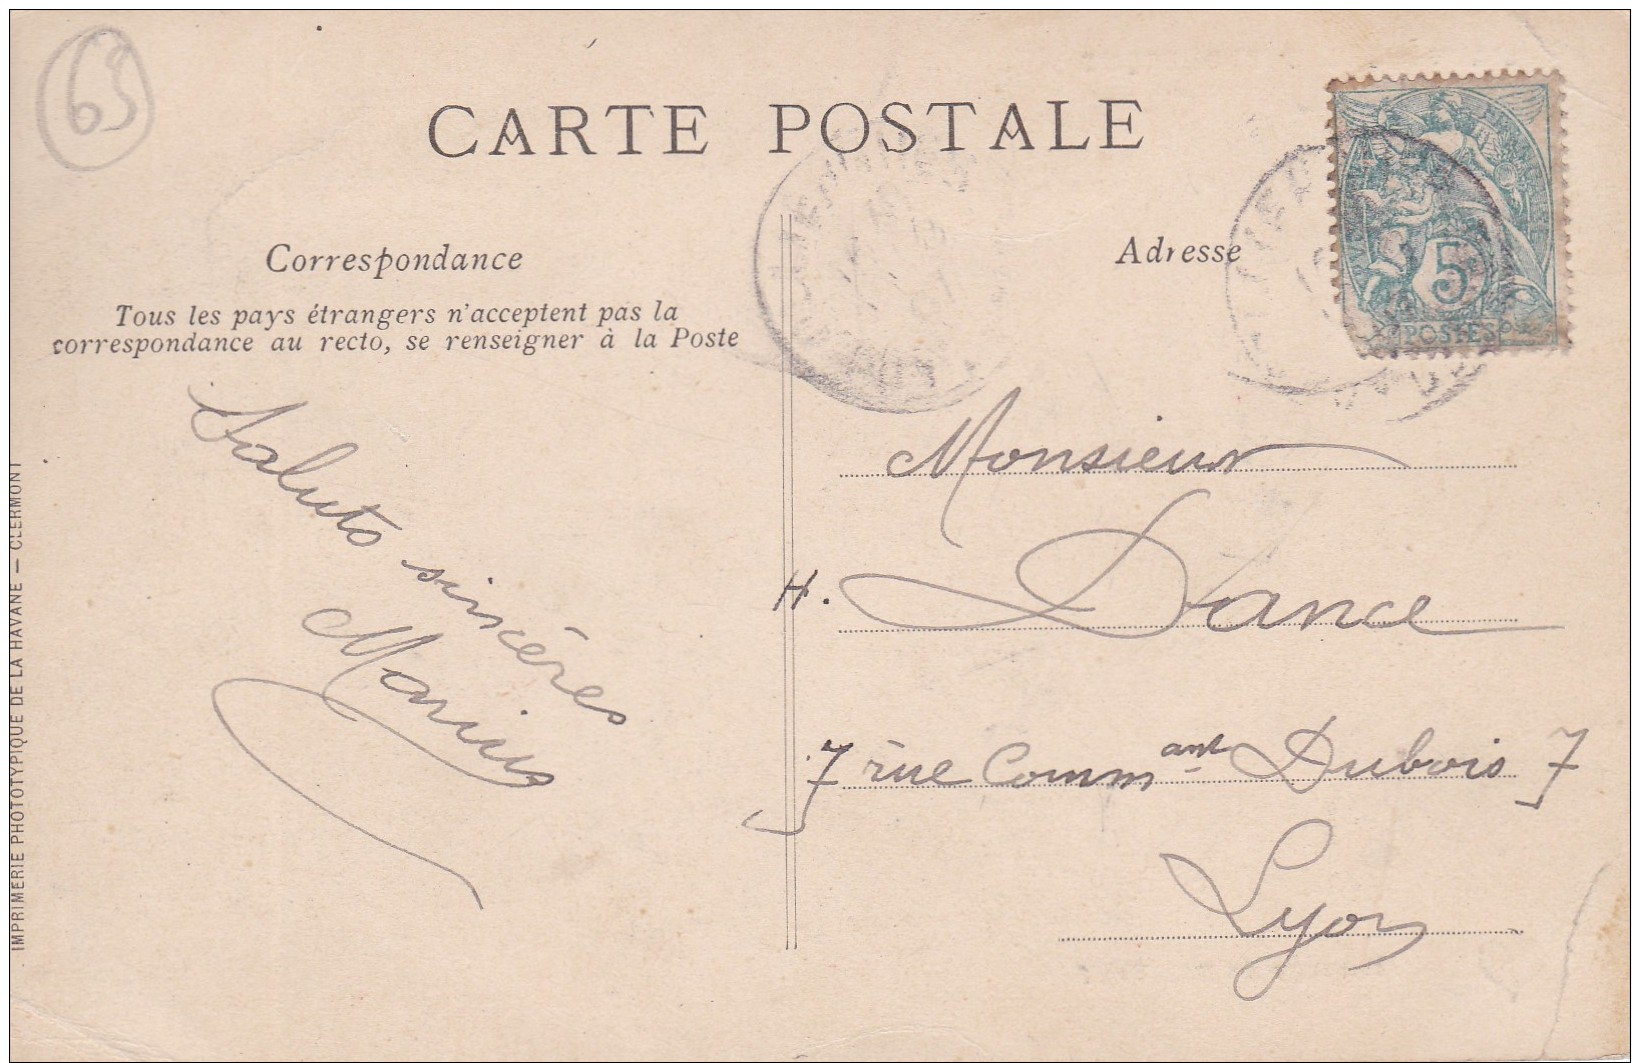 63
CARTE POSTALE
Correspondance
Tous les pays étrangers n'acceptent pas la
correspondance au recto, se renseigner à la Poste
Saluts sincères
Marius
Adresse
5c
POSTES
Monsieur
H. Dance
7 rue Comm^ant Dubois 7
Lyon
IMPRIMERIE PHOTOTYPIQUE DE LA HAVANE — CLERMONT